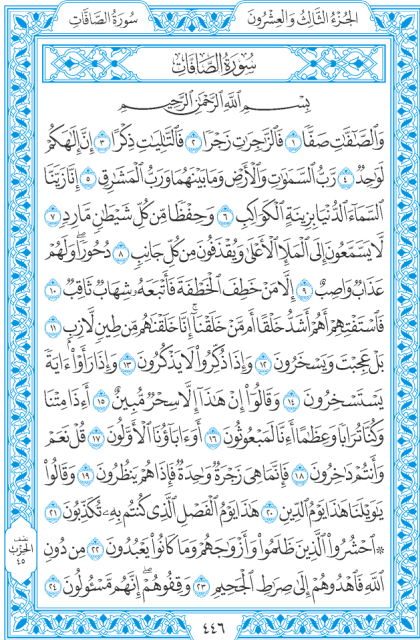 الجُزْءُ الثَّالِثُ وَالعِشْرُونَ
سُورَةُ الصَّافَّاتِ
سُورَةُ الصَّافَّاتِ
بِسْمِ ٱللَّهِ ٱلرَّحْمَٰنِ ٱلرَّحِيمِ
وَٱلصَّٰٓفَّٰتِ صَفًّا ١ فَٱلزَّٰجِرَٰتِ زَجْرًا ٢ فَٱلتَّٰلِيَٰتِ ذِكْرًا ٣ إِنَّ إِلَٰهَكُمْ
لَوَٰحِدٌ ٤ رَّبُّ ٱلسَّمَٰوَٰتِ وَٱلْأَرْضِ وَمَا بَيْنَهُمَا وَرَبُّ ٱلْمَشَٰرِقِ ٥ إِنَّا زَيَّنَّا
ٱلسَّمَآءَ ٱلدُّنْيَا بِزِينَةٍ ٱلْكَوَاكِبِ ٦ وَحِفْظًا مِّن كُلِّ شَيْطَٰنٍ مَّارِدٍ ٧
لَّا يَسَّمَّعُونَ إِلَى ٱلْمَلَإِ ٱلْأَعْلَىٰ وَيُقْذَفُونَ مِن كُلِّ جَانِبٍ ٨ دُحُورًا ۖ وَلَهُمْ
عَذَابٌ وَاصِبٌ ٩ إِلَّا مَنْ خَطِفَ ٱلْخَطْفَةَ فَأَتْبَعَهُۥ شِهَابٌ ثَاقِبٌ ١٠
فَٱسْتَفْتِهِمْ أَهُمْ أَشَدُّ خَلْقًا أَم مَّنْ خَلَقْنَآ ۚ إِنَّا خَلَقْنَٰهُم مِّن طِينٍ لَّازِبٍۭ ١١
بَلْ عَجِبْتَ وَيَسْخَرُونَ ١٢ وَإِذَا ذُكِّرُوا۟ لَا يَذْكُرُونَ ١٣ وَإِذَا رَأَوْا۟ ءَايَةً
يَسْتَسْخِرُونَ ١٤ وَقَالُوٓا۟ إِنْ هَٰذَآ إِلَّا سِحْرٌ مُّبِينٌ ١٥ أَءِذَا مِتْنَا
وَكُنَّا تُرَابًا وَعِظَٰمًا أَءِنَّا لَمَبْعُوثُونَ ١٦ أَوَءَابَآؤُنَا ٱلْأَوَّلُونَ ١٧ قُلْ نَعَمْ
وَأَنتُمْ دَٰخِرُونَ ١٨ فَإِنَّمَا هِىَ زَجْرَةٌ وَٰحِدَةٌ فَإِذَا هُمْ يَنظُرُونَ ١٩ وَقَالُوا۟
يَٰوَيْلَنَا هَٰذَا يَوْمُ ٱلدِّينِ ٢٠ هَٰذَا يَوْمُ ٱلْفَصْلِ ٱلَّذِى كُنتُم بِهِۦ تُكَذِّبُونَ ٢١
۞ ٱحْشُرُوا۟ ٱلَّذِينَ ظَلَمُوا۟ وَأَزْوَٰجَهُمْ وَمَا كَانُوا۟ يَعْبُدُونَ ٢٢ مِن دُونِ
ٱللَّهِ فَٱهْدُوهُمْ إِلَىٰ صِرَٰطِ ٱلْجَحِيمِ ٢٣ وَقِفُوهُمْ ۖ إِنَّهُم مَّسْـُٔولُونَ ٢٤
نصف
الحزب
٤٥
٤٤٦